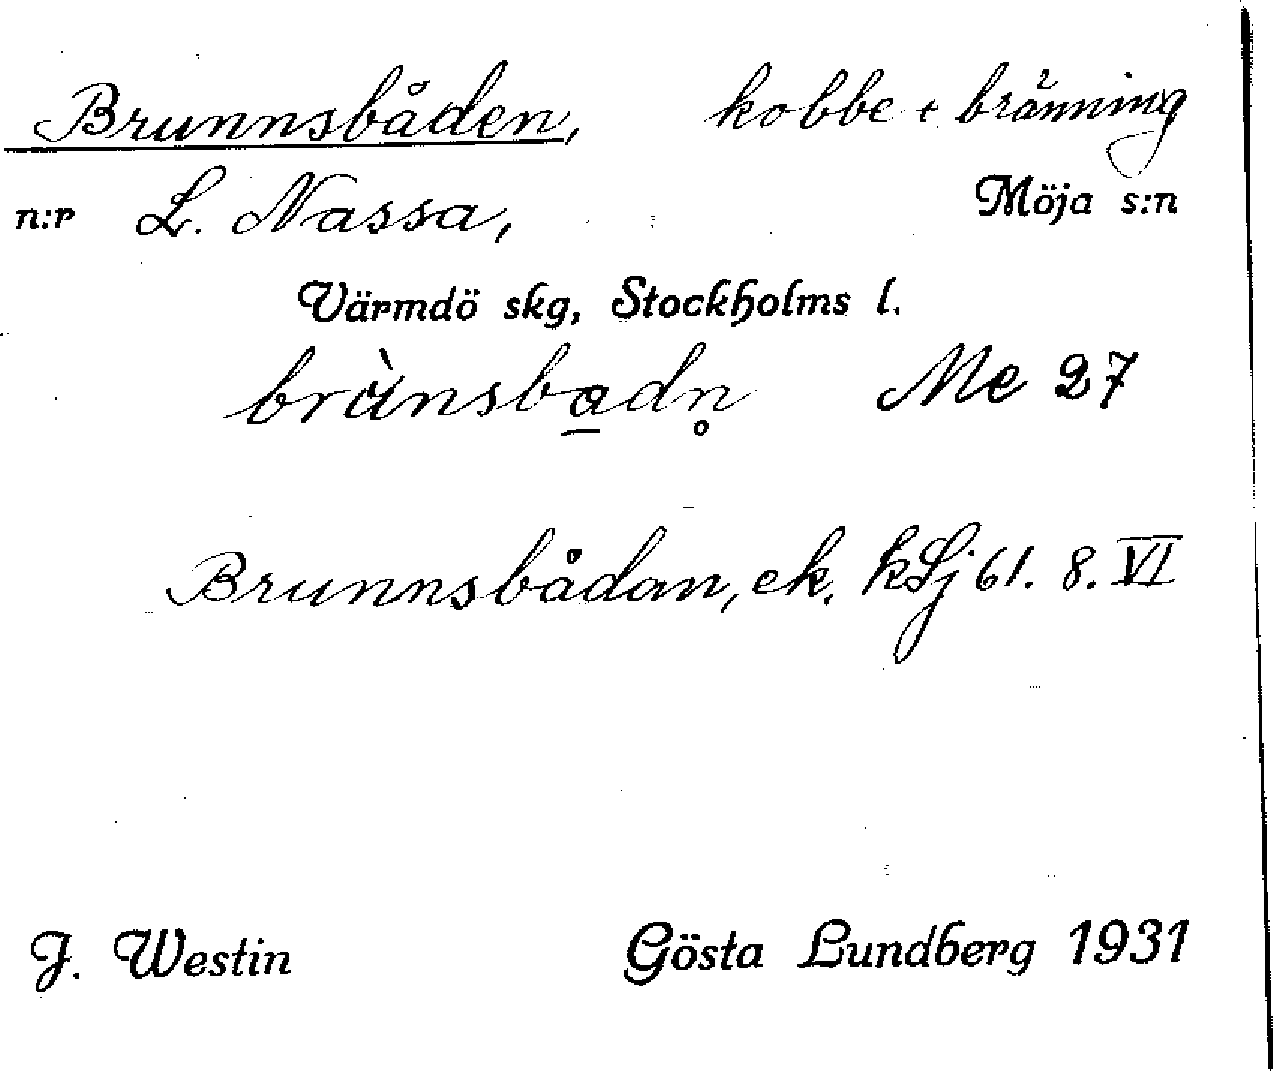 Brunnsbåden, kobbe + bränning
n:r L. Nassa, Möja s:n
Värmdö skg, Stockholms l.
brùnsba̲dn̥ Me 27
Brunnsbådan, ek. kSj 61. 8. VI
J. Westin Gösta Lundberg 1931